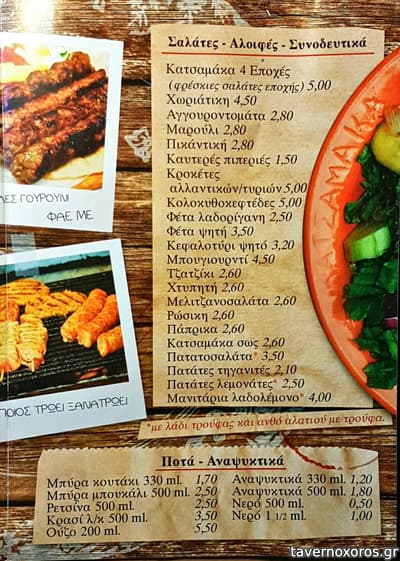 Σαλάτες - Αλοιφές - Συνοδευτικά
Κατσαμάκα 4 Εποχές
(φρέσκιες σαλάτες εποχής) 5,00
Χωριάτικη 4,50
Αγγουροντομάτα 2,80
Μαρούλι 2,80
Πικάντικη 2,80
Καυτερές πιπεριές 1,50
Κροκέτες
αλλαντικών/τυριών 5,00
Κολοκυθοκεφτέδες 5,00
Φέτα λαδορίγανη 2,50
Φέτα ψητή 3,50
Κεφαλοτύρι ψητό 3,20
Μπουγιουρντί 4,50
Τζατζίκι 2,60
Χτυπητή 2,60
Μελιτζανοσαλάτα 2,60
Ρώσικη 2,60
Πάπρικα 2,60
Κατσαμάκα σως 2,60
Πατατοσαλάτα* 3,50
Πατάτες τηγανιτές 2,10
Πατάτες λεμονάτες* 2,50
Μανιτάρια λαδολέμονο* 4,00
*με λάδι τρούφας και ανθό αλατιού με τρούφα.
ΛΕΣ ΓΟΥΡΟΥΝΙ
ΦΑΕ ΜΕ
ΠΟΙΟΣ ΤΡΩΕΙ ΞΑΝΑΤΡΩΕΙ
ΚΑΤΣΑΜΑΚΑ
Ποτά - Αναψυκτικά
Μπύρα κουτάκι 330 ml. 1,70
Μπύρα μπουκάλι 500 ml. 2,50
Ρετσίνα 500 ml. 2,50
Κρασί λ/κ 500 ml. 3,50
Ούζο 200 ml. 5,50
Αναψυκτικά 330 ml. 1,20
Αναψυκτικά 500 ml. 1,80
Νερό 500 ml. 0,50
Νερό 1 1/2 ml. 1,00
tavernoxoros.gr